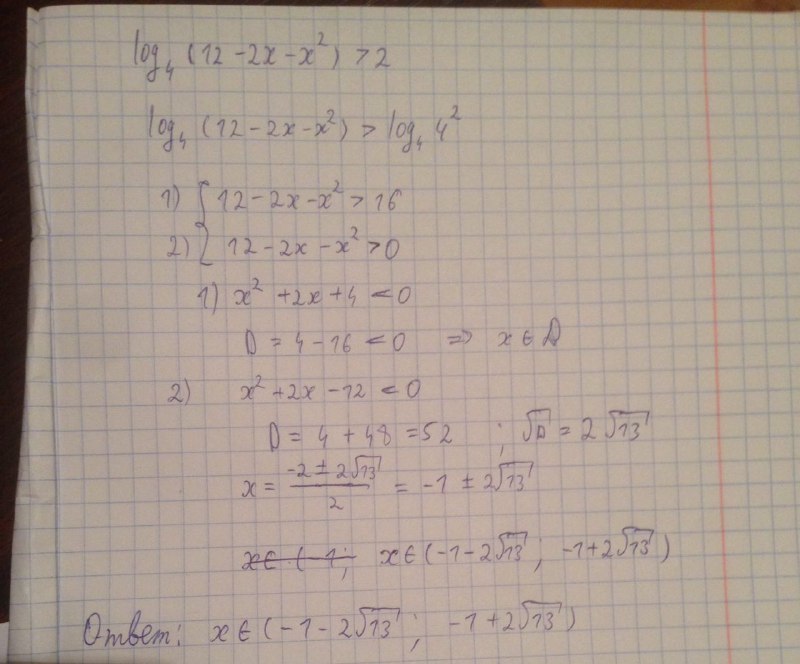 log₄ (12 - 2x - x²) > 2
log₄ (12 - 2x - x²) > log₄ 4²
1) { 12 - 2x - x² > 16
2) { 12 - 2x - x² > 0
1) x² + 2x + 4 < 0
D = 4 - 16 < 0 ⇒ x ∈ R
2) x² + 2x - 12 < 0
D = 4 + 48 = 52 ; √D = 2√13
x = (-2 ± 2√13)/2 = -1 ± 2√13
x ∈ (-1; x ∈ (-1 - 2√13 ; -1 + 2√13)
Ответ: x ∈ (-1 - 2√13 ; -1 + 2√13)